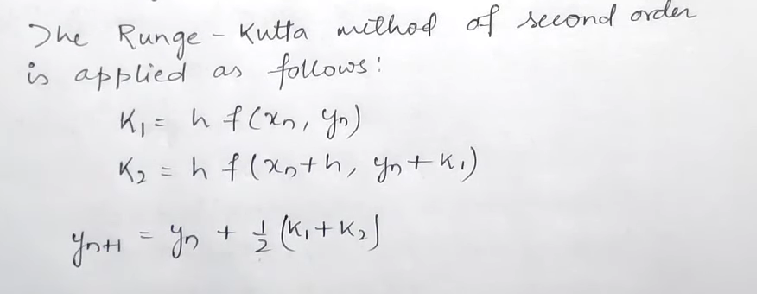 The Runge - Kutta method of second order
is applied as follows:
K₁ = h f(xₙ, yₙ)
K₂ = h f(xₙ+h, yₙ+K₁)
yₙ₊₁ = yₙ + 1/2 (K₁+K₂)